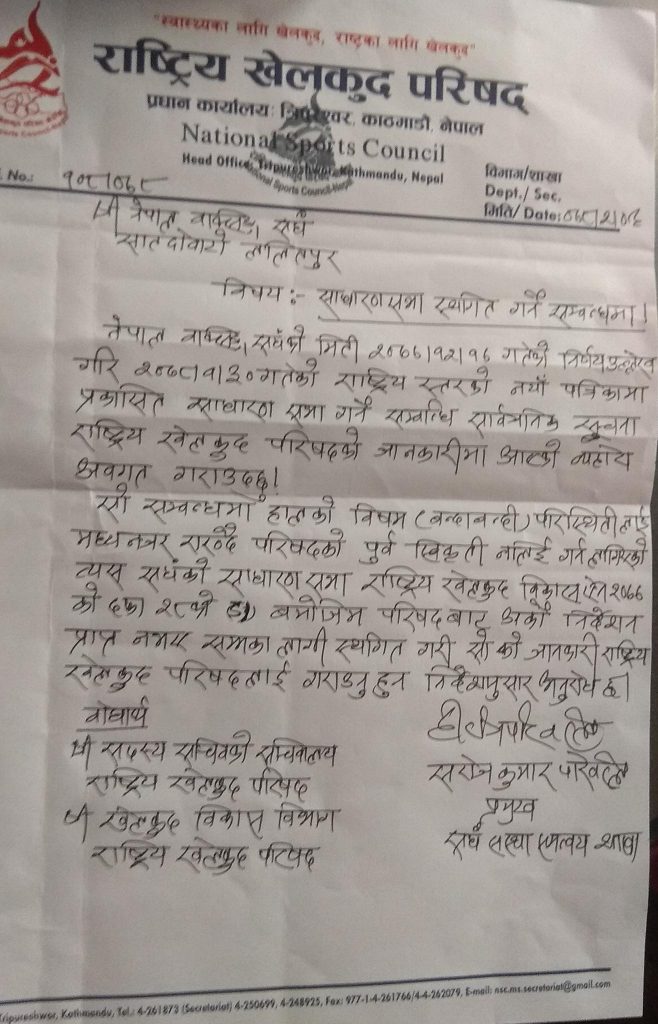 "स्वास्थ्यका लागि खेलकुद, राष्ट्रका लागि खेलकुद"
राष्ट्रिय खेलकुद परिषद
प्रधान कार्यालयः त्रिपुरेश्वर, काठमाडौं, नेपाल
National Sports Council
Head Office, Tripureshwor, Kathmandu, Nepal
No.:
विभाग/शाखा
Dept./ Sec.
मिति/ Date:
श्री नेपाल बक्सिङ संघ
सातदोबाटो ललितपुर
विषय :- साधारण सभा स्थगित गर्ने सम्बन्धमा।
नेपाल बक्सिङ संघको मिती २०७७।१२।१६ गतेको निर्णय उल्लेख
गरि २०७८।१।३० गतेको राष्ट्रिय स्तरको नयाँ पत्रिकामा
प्रकासित साधारण सभा गर्ने सम्बन्धि सार्वजनिक सूचना
राष्ट्रिय खेलकुद परिषदको जानकारीमा आएको व्यहोरा
अवगत गराउदछु।
सो सम्बन्धमा हालको विषम (बन्दाबन्दी) परिस्थिती लाई
मध्यनजर राख्दै परिषदको पुर्व स्विकृती नलिई गर्न लागिएको
त्यस संघको साधारण सभा राष्ट्रिय खेलकुद विकास ऐन २०७७
को दफा २८ को बमोजिम परिषद बाट अर्को निर्देशन
प्राप्त नभए सम्मका लागी स्थगित गरी सो को जानकारी राष्ट्रिय
खेलकुद परिषदलाई गराउनु हुन निर्देशानुसार अनुरोध छ।
बोधार्थ
श्री सदस्य सचिवको सचिवालय
राष्ट्रिय खेलकुद परिषद
श्री खेलकुद विकास विभाग
राष्ट्रिय खेलकुद परिषद
सरोज कुमार
प्रमुख
संघ संस्था समन्वय शाखा
Tripureshwor, Kathmandu, Tel.: 4-261873 (Secretariat) 4-250699, 4-248925, Fax: 977-1-4-261766/4-4-262079, E-mail: nsc.ms.secretariat@gmail.com